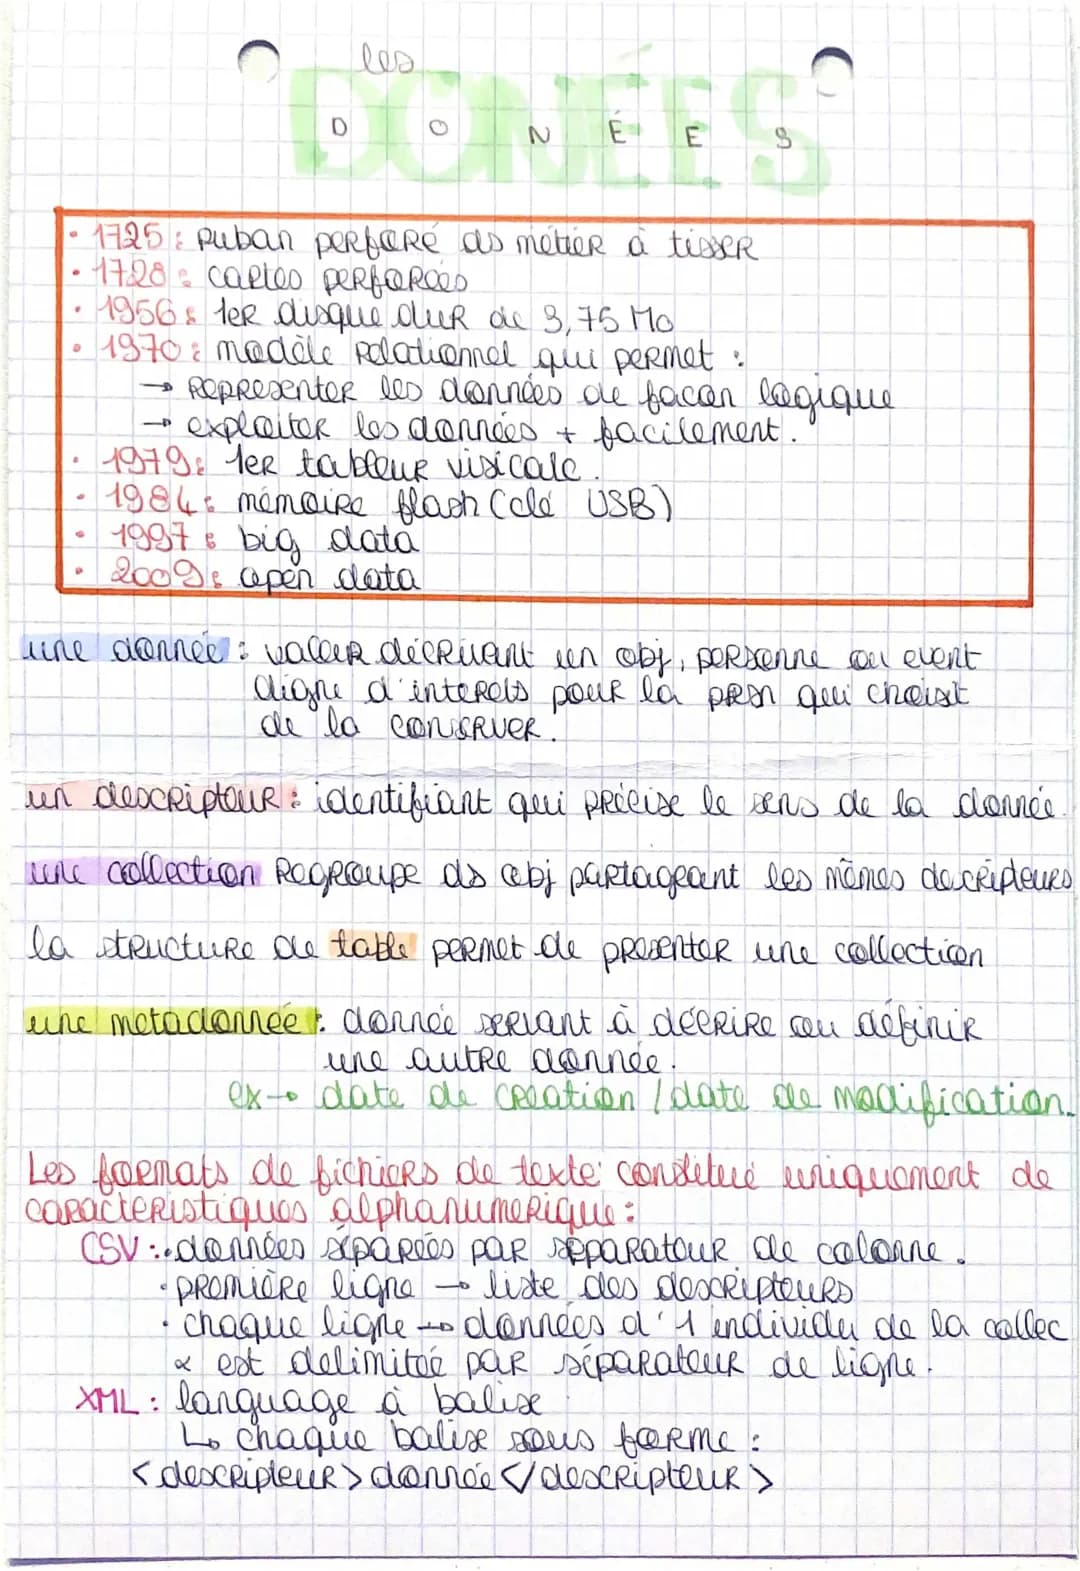 les
DONÉES
D O N É E S
• 1725 : Ruban perforé ds métier à tisser
• 1728 : cartes perforées
• 1956 : 1er disque dur de 3,75 Mo
• 1970 : modèle relationnel qui permet :
→ Représenter les données de facon logique
→ exploiter les données + facilement.
• 1979 : 1er tableur visicalc.
• 1984 : mémoire flash (clé USB)
• 1997 : big data
• 2009 : open data
une donnée : valeur décrivant un obj, personne ou event
digne d'interets pour la prsn qui choisit
de la conserver.
un descripteur : identifiant qui précise le sens de la donnée.
une collection Regroupe ds obj partageant les mêmes descripteurs
la structure de table permet de presenter une collection
une metadonnée : donnée servant à décrire ou définir
une autre donnée.
ex → date de creation / date de modification.
Les formats de fichiers de texte : constitué uniquement de
caractéristiques alphanumerique :
CSV : • données séparées par séparateur de colonne.
• première ligne → liste des descripteurs
• chaque ligne → données d'1 individu de la collec
& est delimitée par séparateur de ligne.
XML : language à balise
↳ chaque balise sous forme :
<descripteur> donnée </descripteur>